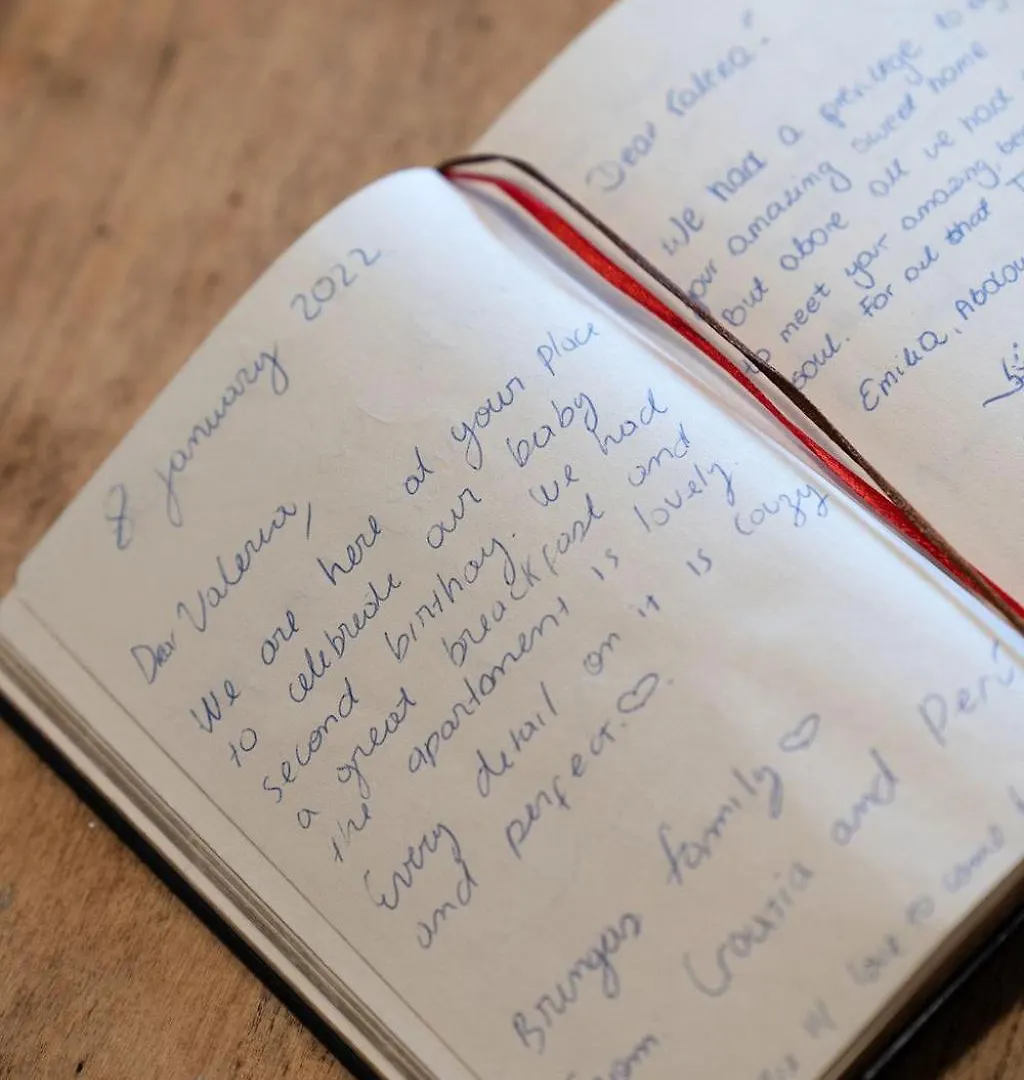 8 january 2022
Dear Valeria,
We are here at your place
to celebrate our baby
second birthay. We had
a great breackfast and
the apartament is lovely.
Every detail on it is coozy
and perfect. ♡
Brungas family ♡
from Croatia and Perú
love to come
Dear
We had a privilege to
your amazing sweet home
but above all we had
to meet your amazing,
soul. For all that
Emilia,